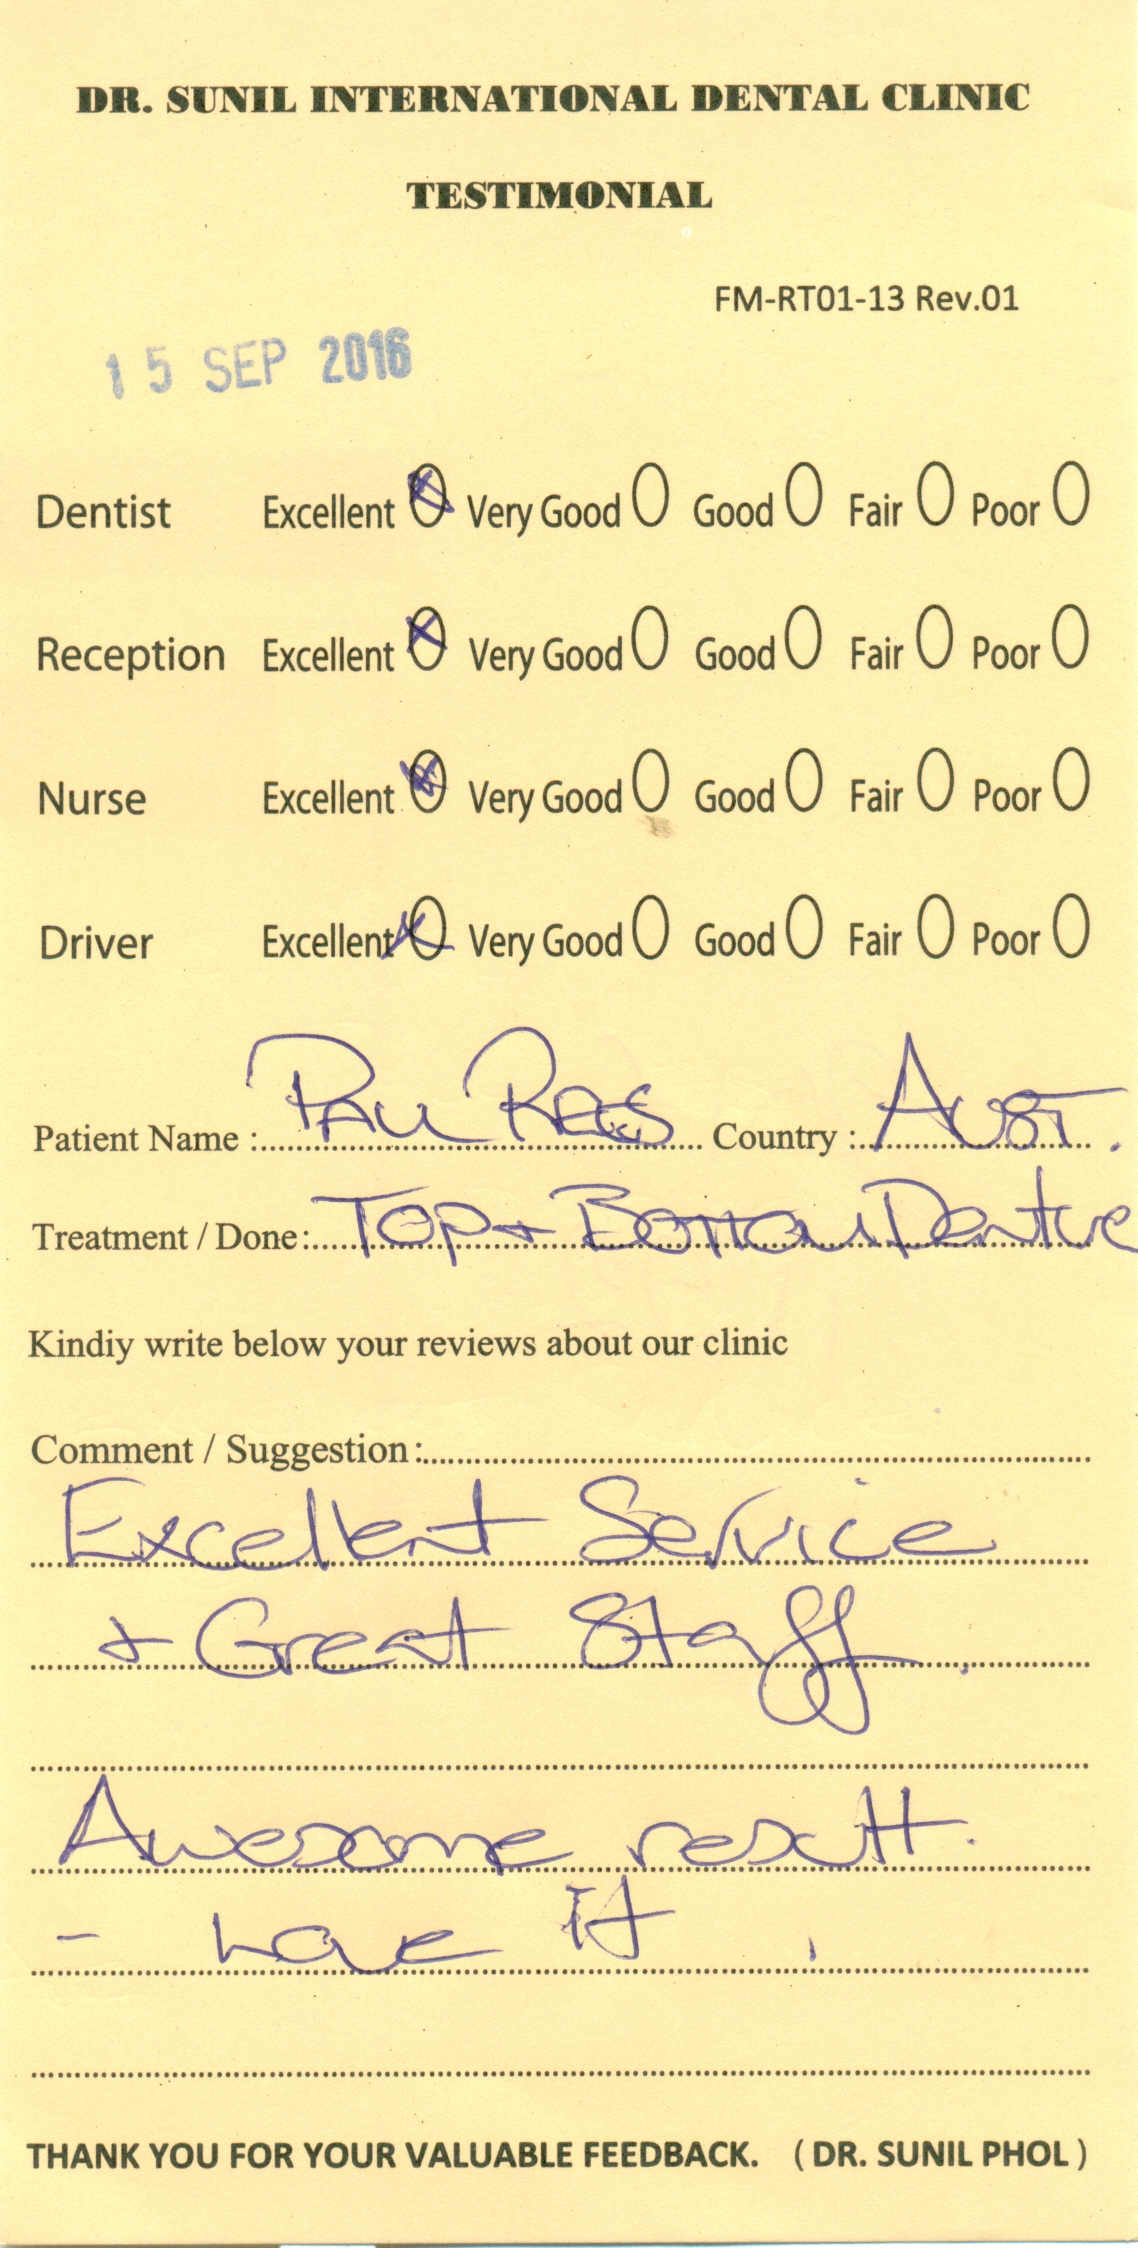 DR. SUNIL INTERNATIONAL DENTAL CLINIC
TESTIMONIAL
FM-RT01-13 Rev.01
15 SEP 2016
Dentist Excellent Very Good Good Fair Poor
Reception Excellent Very Good Good Fair Poor
Nurse Excellent Very Good Good Fair Poor
Driver Excellent Very Good Good Fair Poor
Patient Name : Paul Rees Country : Aust.
Treatment / Done: Top + Bottom Denture
Kindiy write below your reviews about our clinic
Comment / Suggestion :
Excellent Service
+ Great Staff.
Awesome result.
- Love It
THANK YOU FOR YOUR VALUABLE FEEDBACK. ( DR. SUNIL PHOL )